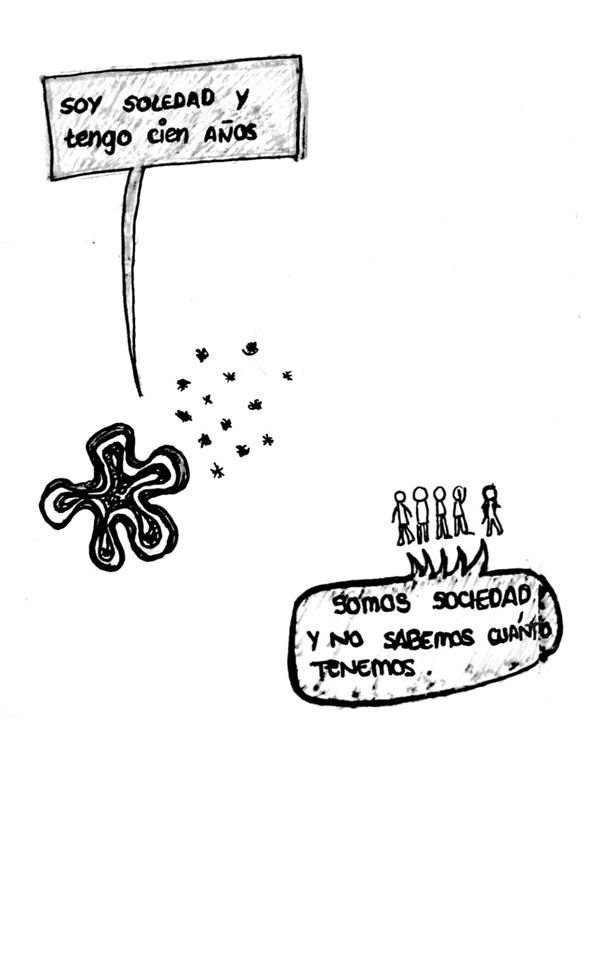 SOY SOLEDAD Y
tengo cien AÑOS
SOMOS SOCIEDAD
Y NO SABEMOS CUÁNTO
TENEMOS.